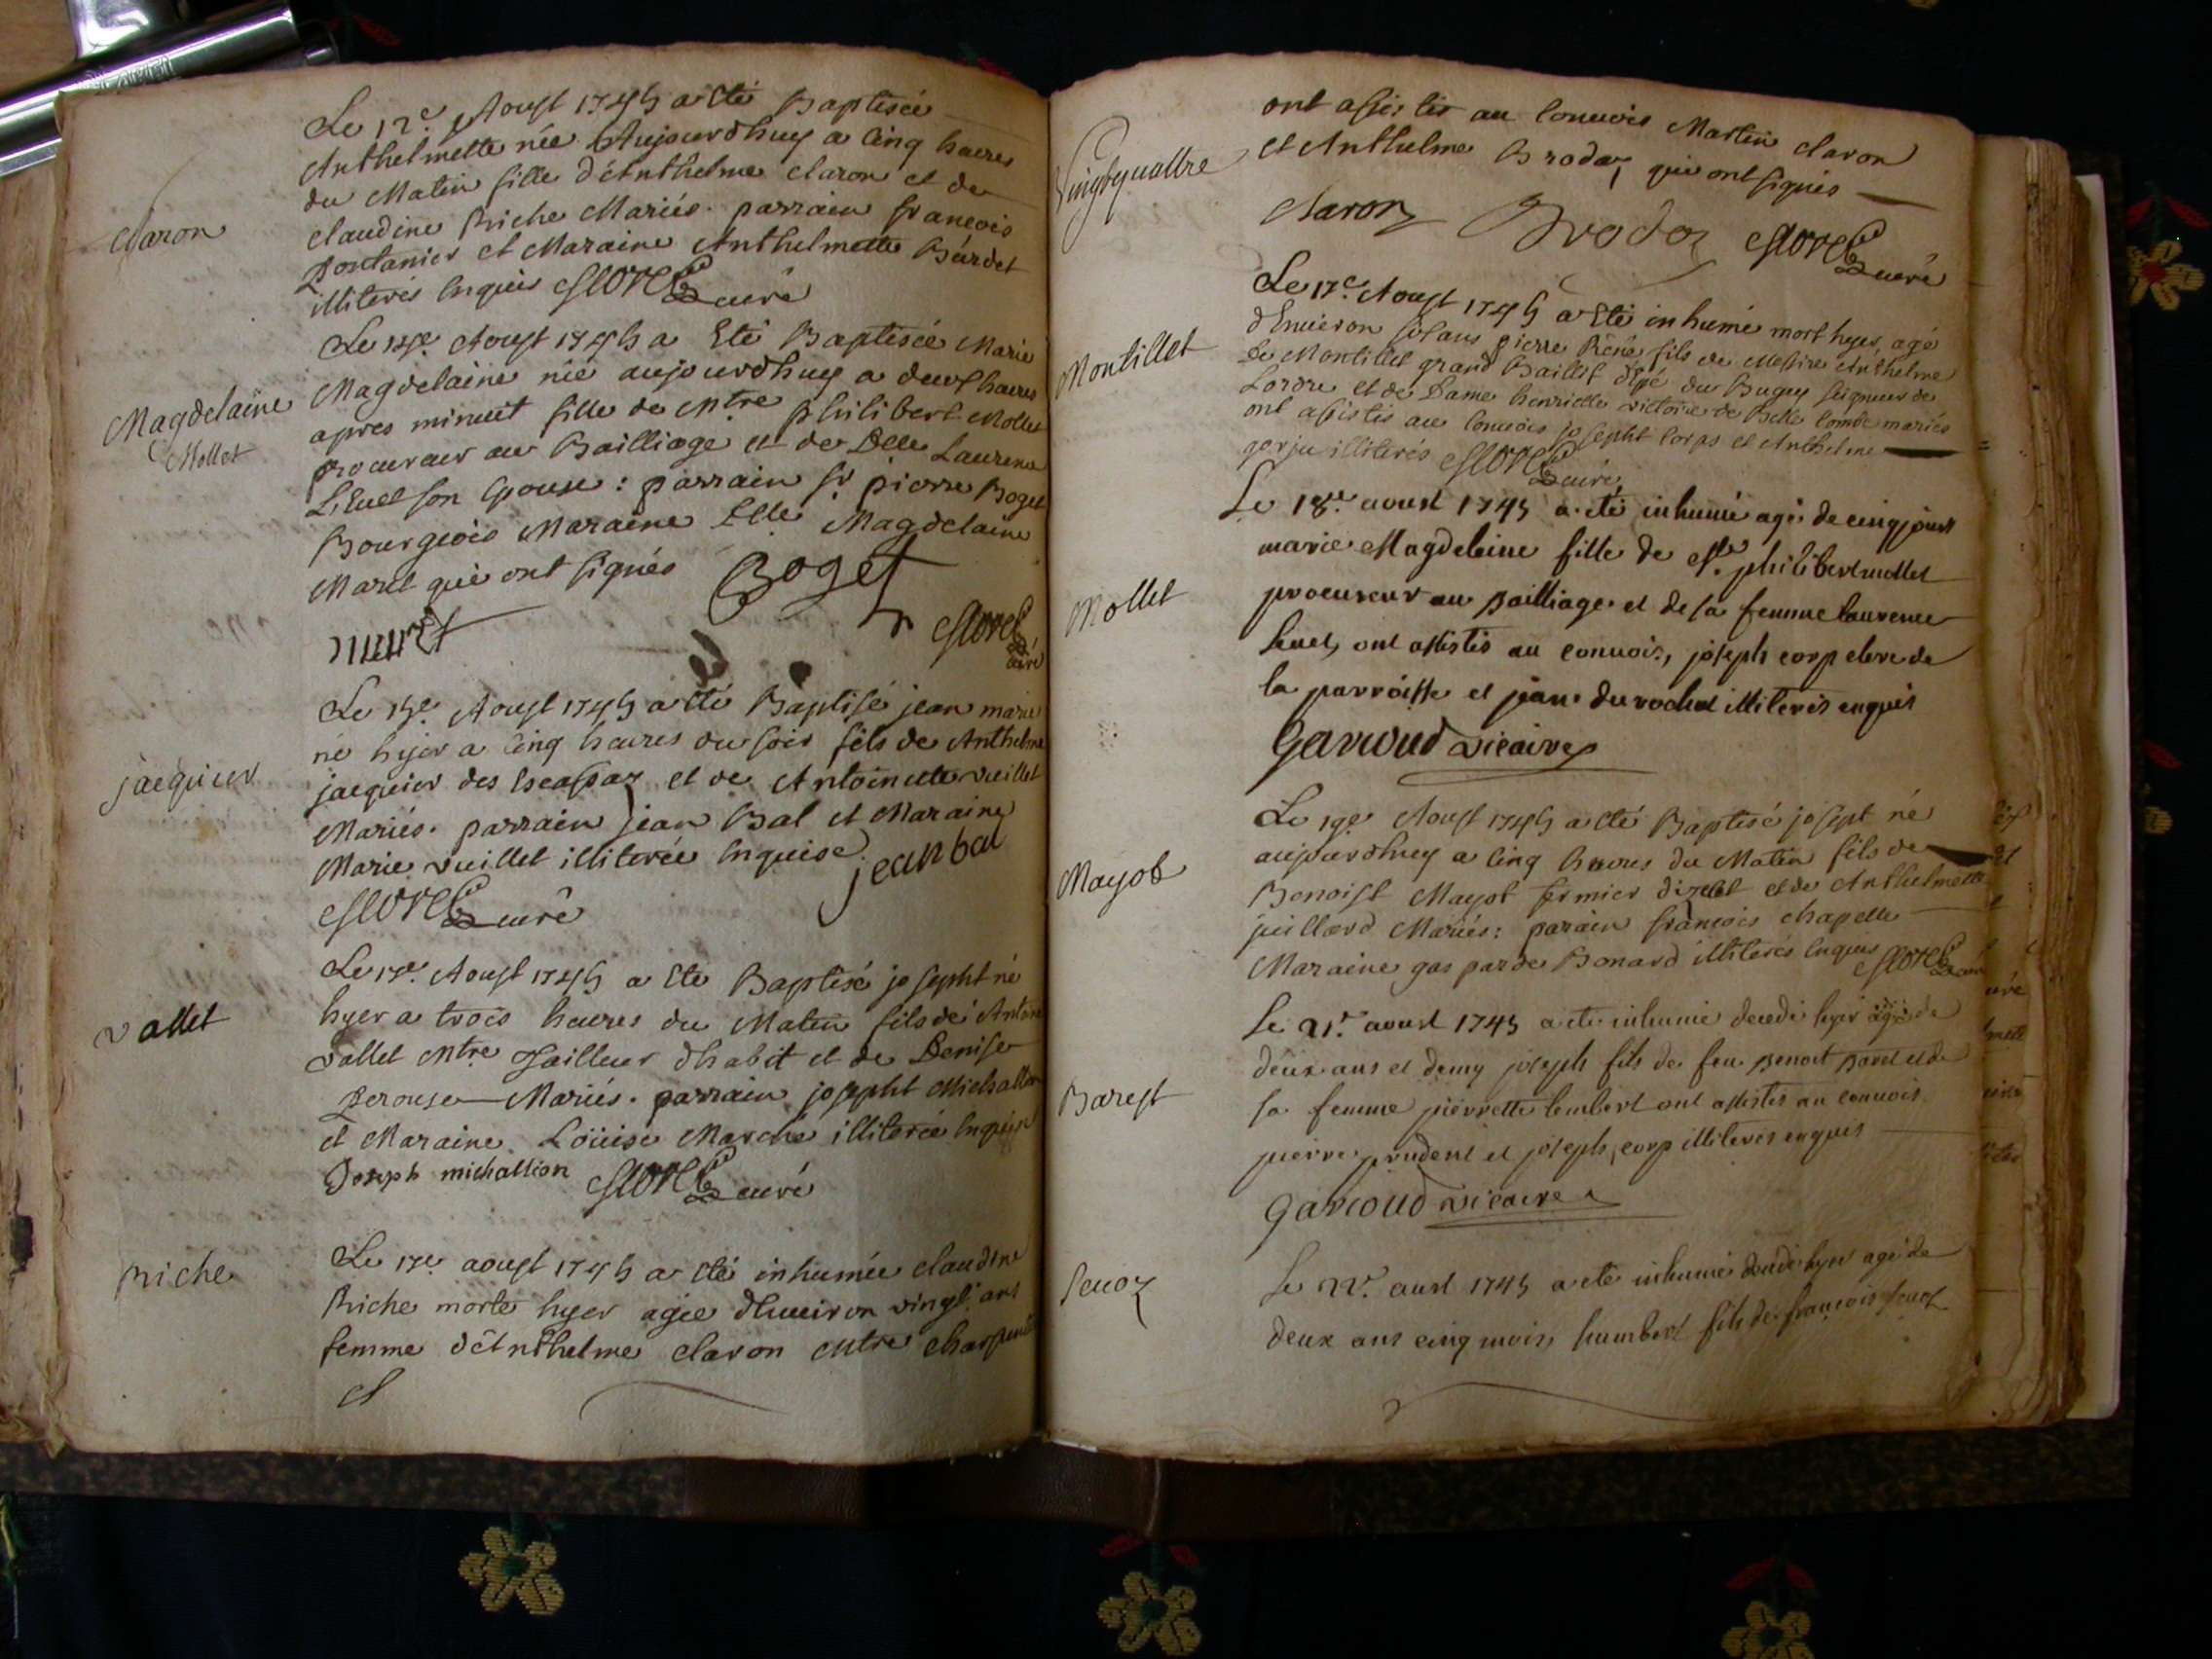 Claron
Le 12e. Aoust 1745 a Eté Baptisée
Anthelmette née Aujourdhuy a Cinq heures
du Matin fille d'Anthelme Claron et de
Claudine Riche Mariés. parrain francois
et Maraine Anthelmette
illiterés Enquis curé
Magdelaine
Mollet
Le Aoust 1745 a Eté Baptisée Marie
Magdelaine née aujourdhuy a deux heures
apres minuit fille de Mtre philibert Mollet
procureur au Bailliage et de Delle Laurence
son Epouse : parrain Sr pierre Boget
Bourgeois Maraine Delle Magdelaine
Maret qui ont signés Boget
curé
jacquier
Le Aoust 1745 a Eté Baptisé jean marie
né hyer a Cinq heures du soir fils de Anthelme
jacquier des et de Antoinette vuillet
Mariés. parrain jean Bal et Maraine
Marie vuillet illiterée Enquise. jean bal
curé
vallet
Le Aoust 1745 a Eté Baptisé josepht né
hyer a trois heures du Matin fils de Antoine
vallet Mtre Tailleur dhabit et de Denise
Perouse Mariés. parrain josepht Michallion
et Maraine Loüise Marche illiterée Enquise
Joseph michallion curé
Riche
Le 17e aoust 1745 a Eté inhumée claudine
Riche morte hyer agée dEnviron vingt ans
femme d'Anthelme claron Mtre
et
Vingtquattre
ont assistés au Convois Martin claron
et Anthelme Brodaz qui ont signés
Claron Brodaz curé
Montillet
Le 17e. Aoust 1745 a Eté inhumé mort hyer, agé
dEnviron pierre René fils de Messire Anthelme
de Montillet grand Baillif d'Epé du Bugey seigneur de
et de Dame henriette victoire de Belle Combe mariés
ont assistés au Convois josepht Corps et Anthelme
gorju illiterés curé
Mollet
Le 18e. aoust 1745 a eté inhumé agé de cinq jours
marie Magdeleine fille de Mr. philibert mollet
procureur au Bailliage et de sa femme laurence
ont assistés au convois, joseph corp clerc de
la parroisse et jean durochat illiterés enquis
Garioud vicaire
Mayot
Le 19e Aoust 1745 a eté Baptisé josept né
aujourdhuy a Cinq heures du Matin fils de
Benoist Mayot fermier et de Anthelmette
juillard Mariés : parain francois chapelle
Maraine gasparde Bonard illiterés Enquis curé
Barest
Le 21e. aoust 1745 a eté inhumé decedé hyer agé de
deux ans et demy joseph fils de feu Benoit et de
sa femme pierrette lembert ont assistés au convois
pierre prudent et joseph corp illiterés enquis
Garioud vicaire
Senoz
Le 22e. aust 1745 a eté inhumé decedé hyer agé de
deux ans cinq mois, humbert fils de francois